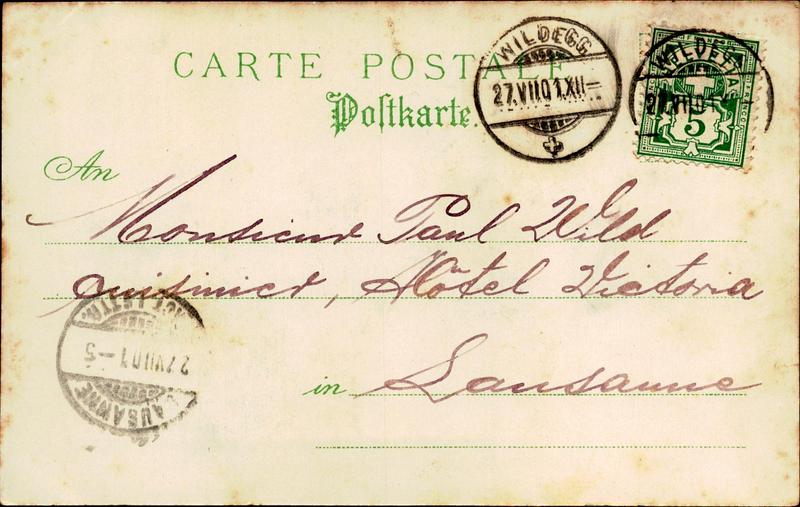 CARTE POSTALE
Postkarte.
WILDEGG
27.VII.01.XII
HELVETIA
FRANCO
5
An
Monsieur Paul Wild
cuisinier, Hôtel Victoria
in Lausanne
LAUSANNE
27.VII.01-5